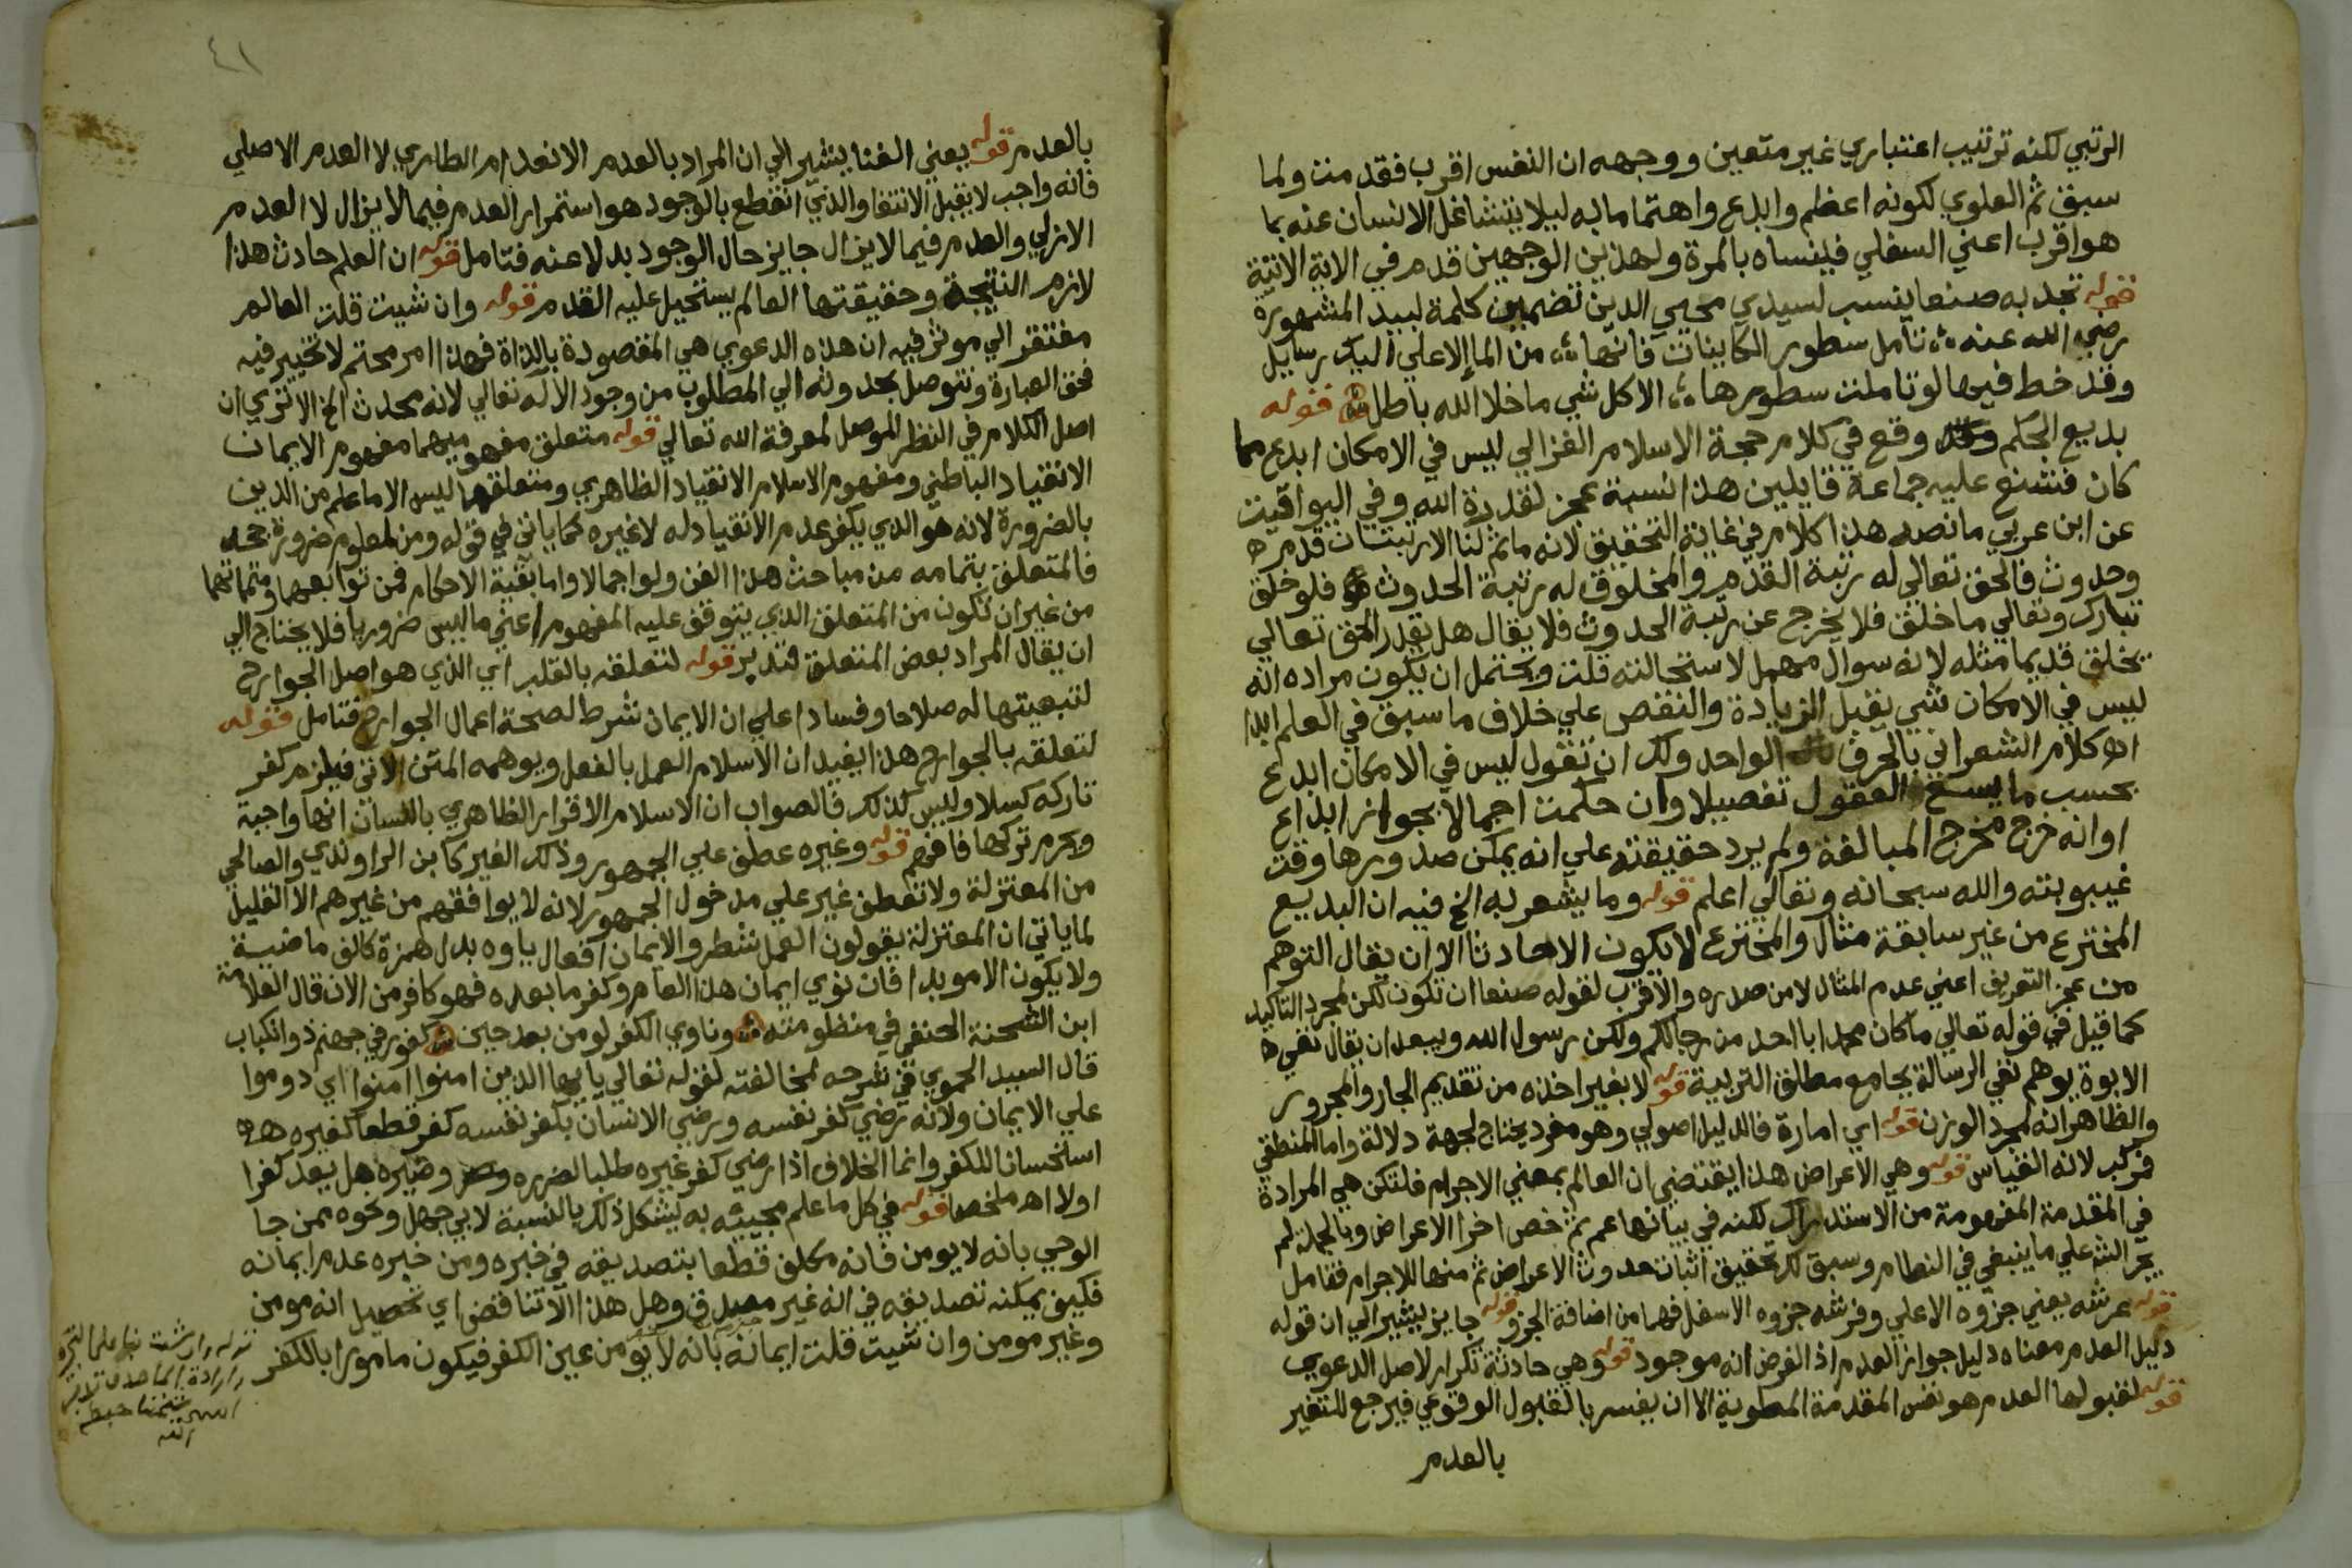 الرتبي لكنه ترتيب اعتباري غير متعين ووجهه ان النفس اقرب فقدمت ولما
سبق ثم العلوي لكونه اعظم وابدع واهتماما به ليلا يتشاغل الانسان عنه بما
هو اقرب اعني السفلي فينساه بالمرة ولهذين الوجهين قدم في الاية الاتية
قوله تجد به صنعا ينسب لسيدي محيي الدين تضمين كلمة لبيد المشهورة
رضي الله عنه تأمل سطور الكاينات فانها من الملا الاعلي اليك رسايل
وقد خط فيها لو تاملت سطورها الا كل شي ما خلا الله باطل قوله
بديع الحكم وقع في كلام حجة الاسلام الغزالي ليس في الامكان ابدع مما
كان فشنع عليه جماعة قايلين هذا نسبة عجز لقدرة الله وفي اليواقيت
عن ابن عربي ما نصه هذا كلام في غاية التحقيق لانه ما ثم لنا الا رتبتان قدم
وحدوث فالحق تعالي له رتبة القدم والمخلوق له رتبة الحدوث فلو خلق
تبارك وتعالي ما خلق فلا يخرج عن رتبة الحدوث فلا يقال هل يقدر الحق تعالي
يخلق قديما مثله لانه سوال مهمل لاستحالته قلت ويحتمل ان يكون مراده انه
ليس في الامكان شي يقبل الزيادة والنقص علي خلاف ما سبق في العلم ابدا
اه كلام الشعراني بالحرف الواحد ولك ان تقول ليس في الامكان ابدع
بحسب ما العقول تفصيلا وان حكمت اجمالا بجواز ابداع
او انه خرج مخرج المبالغة ولم يرد حقيقته علي انه يمكن صدورها وقت
غيبوبته والله سبحانه وتعالي اعلم قوله وما يشعر به الخ فيه ان البديع
المخترع من غير سابقة مثال والمخترع لا يكون الا حادثا الا ان يقال التوهم
من عجز التعريف اعني عدم المثال لا من صدره والاقرب لقوله صنعا ان تكون لكن لمجرد التاكيد
كما قيل في قوله تعالي ما كان محمد ابا احد من رجالكم ولكن رسول الله ويبعد ان يقال نفي
الابوة يوهم نفي الرسالة بجامع مطلق التربية قوله لا بغير اخذه من تقديم الجار والمجرور
والظاهر انه لمجرد الوزن قوله اي امارة فالدليل اصولي وهو مفرد يحتاج لجهة دلالة واما المنطقي
فمركب لانه القياس قوله وهي الاعراض هذا يقتضي ان العالم بمعني الاجرام فلتكن هي المرادة
في المقدمة المفهومة من الاستدراك لكنه في بيانها عمم ثم خص اخرا الاعراض وبالجملة لم
يجر الش علي ما ينبغي في النظام وسبق لك تحقيق اثبات حدوث الاعراض ثم منها للاجرام فتامل
قوله عرشه يعني جزوه الاعلي وفرشه جزوه الاسفل فهما من اضافة الجزو قوله جايز يشير الي ان قوله
دليل العدم معناه دليل جواز العدم اذ الفرض انه موجود قوله وهي حادثة تكرار لاصل الدعوي
قوله لقبولها العدم هو نفس المقدمة المطوية الا ان يفسر بالقبول الوقوعي فيرجع للتغير
بالعدم
٤١
بالعدم قوله يعني الفنا يشير الي ان المراد بالعدم الانعدام الطاري لا العدم الاصلي
فانه واجب لا يقبل الانتفا والذي انقطع بالوجود هو استمرار العدم فيما لا يزال لا العدم
الازلي والعدم فيما لا يزال جايز حال الوجود بدلا عنه فتامل قوله ان العلم حادث هذا
لازم النتيجة وحقيقتها العالم يستحيل عليه القدم قوله وان شيت قلت العالم
مفتقر الي موثر فيه ان هذه الدعوي هي المقصودة بالذاة فهذا امر محتم لا تخيير فيه
فحق العبارة ونتوصل بحدوثه الي المطلوب من وجود الاله تعالي لانه محدث الخ الا تري ان
اصل الكلام في النظر الموصل لمعرفة الله تعالي قوله متعلق مفهوميهما مفهوم الايمان
الانقياد الباطني ومفهوم الاسلام الانقياد الظاهري ومتعلقهما ليس الا ما علم من الدين
بالضرورة لانه هو الذي يكفر عدم الانقياد له لا غيره كما ياتي في قوله ومن لمعلوم ضرورة جحد
فالمتعلق بتمامه من مباحث هذا الفن ولو اجمالا واما بقية الاحكام فمن توابعها ومتماتها
من غير ان تكون من المتعلق الذي يتوقف عليه المفهوم اعني ما ليس ضروريا فلا يحتاج الي
ان يقال المراد بعض المتعلق فتدبر قوله لتعلقه بالقلب اي الذي هو اصل الجوارح
لتبعيتها له صلاحا وفسادا علي ان الايمان شرط لصحة اعمال الجوارح فتامل قوله
لتعلقه بالجوارح هذا يفيد ان الاسلام العمل بالفعل ويوهمه المتن الاتي فيلزم كفر
تاركه كسلا وليس كذلك فالصواب ان الاسلام الاقرار الظاهري باللسان انها واجبة
ويحرم تركها فافهم قوله وغيره عطف علي الجمهور وذلك الغير كابن الراوندي والصالحي
من المعتزلة ولا تعطف غير علي مدخول الجمهور لانه لا يوافقهم من غيرهم الا القليل
لما ياتي ان المعتزلة يقولون العمل شطر والايمان افعال ياوه بدل همزة كالف ماضيه
ولا يكون الا موبدا فان نوي ايمان هذا العام وكفر ما بعده فهو كافر من الان قال العلامة
ابن الشحنة الحنفي في منظومته وناوي الكفر لو من بعد حين كفور في جهنم ذو انكباب
قال السيد الحموي في شرحه لمخالفته لقوله تعالي يايها الذين امنوا امنوا اي دوموا
علي الايمان ولانه رضي كفر نفسه ورضي الانسان بكفر نفسه كفر قطعا كغيره
استحسانا للكفر وانما الخلاف اذا رضي كفر غيره طلبا لضرره وضيره هل يعد كفرا
اولا اهـ ملخصا قوله في كل ما علم مجييه به يشكل ذلك بالنسبة لابي جهل ونحوه ممن جا
الوحي بانه لا يومن فانه مكلف قطعا بتصديقه في خبره ومن خبره عدم ايمانه
فكيف يمكنه تصديقه في انه غير مصدق وهل هذا الا تناقض اي تحصيل انه مومن
وغير مومن وان شيت قلت ايمانه بانه لا يومن عين الكفر فيكون مامورا بالكفر